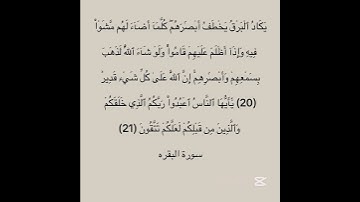 يَكَادُ ٱلۡبَرۡقُ يَخۡطَفُ أَبۡصَٰرَهُمۡۖ كُلَّمَآ أَضَآءَ لَهُم مَّشَوۡاْ
فِيهِ وَإِذَآ أَظۡلَمَ عَلَيۡهِمۡ قَامُواْۚ وَلَوۡ شَآءَ ٱللَّهُ لَذَهَبَ
بِسَمۡعِهِمۡ وَأَبۡصَٰرِهِمۡۚ إِنَّ ٱللَّهَ عَلَىٰ كُلِّ شَيۡءٖ قَدِيرٞ
(20) يَٰٓأَيُّهَا ٱلنَّاسُ ٱعۡبُدُواْ رَبَّكُمُ ٱلَّذِي خَلَقَكُمۡ
وَٱلَّذِينَ مِن قَبۡلِكُمۡ لَعَلَّكُمۡ تَتَّقُونَ (21)
سورة البقره